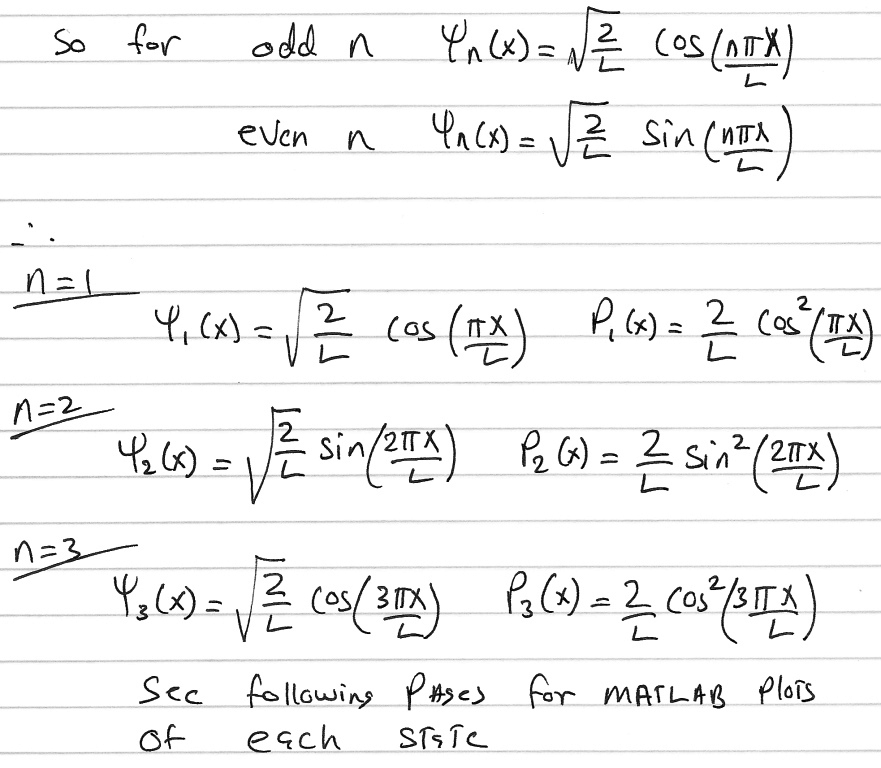 So for odd n Ψn(x) = √(2/L) cos(nπx/L)
even n Ψn(x) = √(2/L) sin(nπx/L)
∴
n=1
Ψ₁(x) = √(2/L) cos(πx/L) P₁(x) = 2/L cos²(πx/L)
n=2
Ψ₂(x) = √(2/L) sin(2πx/L) P₂(x) = 2/L sin²(2πx/L)
n=3
Ψ₃(x) = √(2/L) cos(3πx/L) P₃(x) = 2/L cos²(3πx/L)
See following Pages for MATLAB Plots
of each state